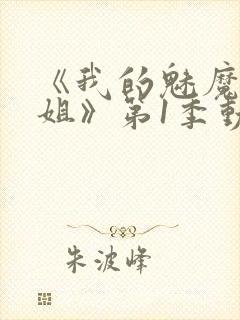 《我的魅魔
姐》第1季動
朱波峰